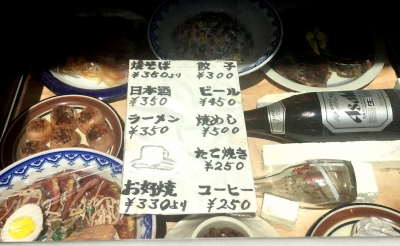 焼そば
¥350より
日本酒
¥350
ラーメン
¥350
お好焼
¥330より
餃子
¥300
ビール
¥450
焼めし
¥500
たこ焼き
¥250
コーヒー
¥250
Asahi